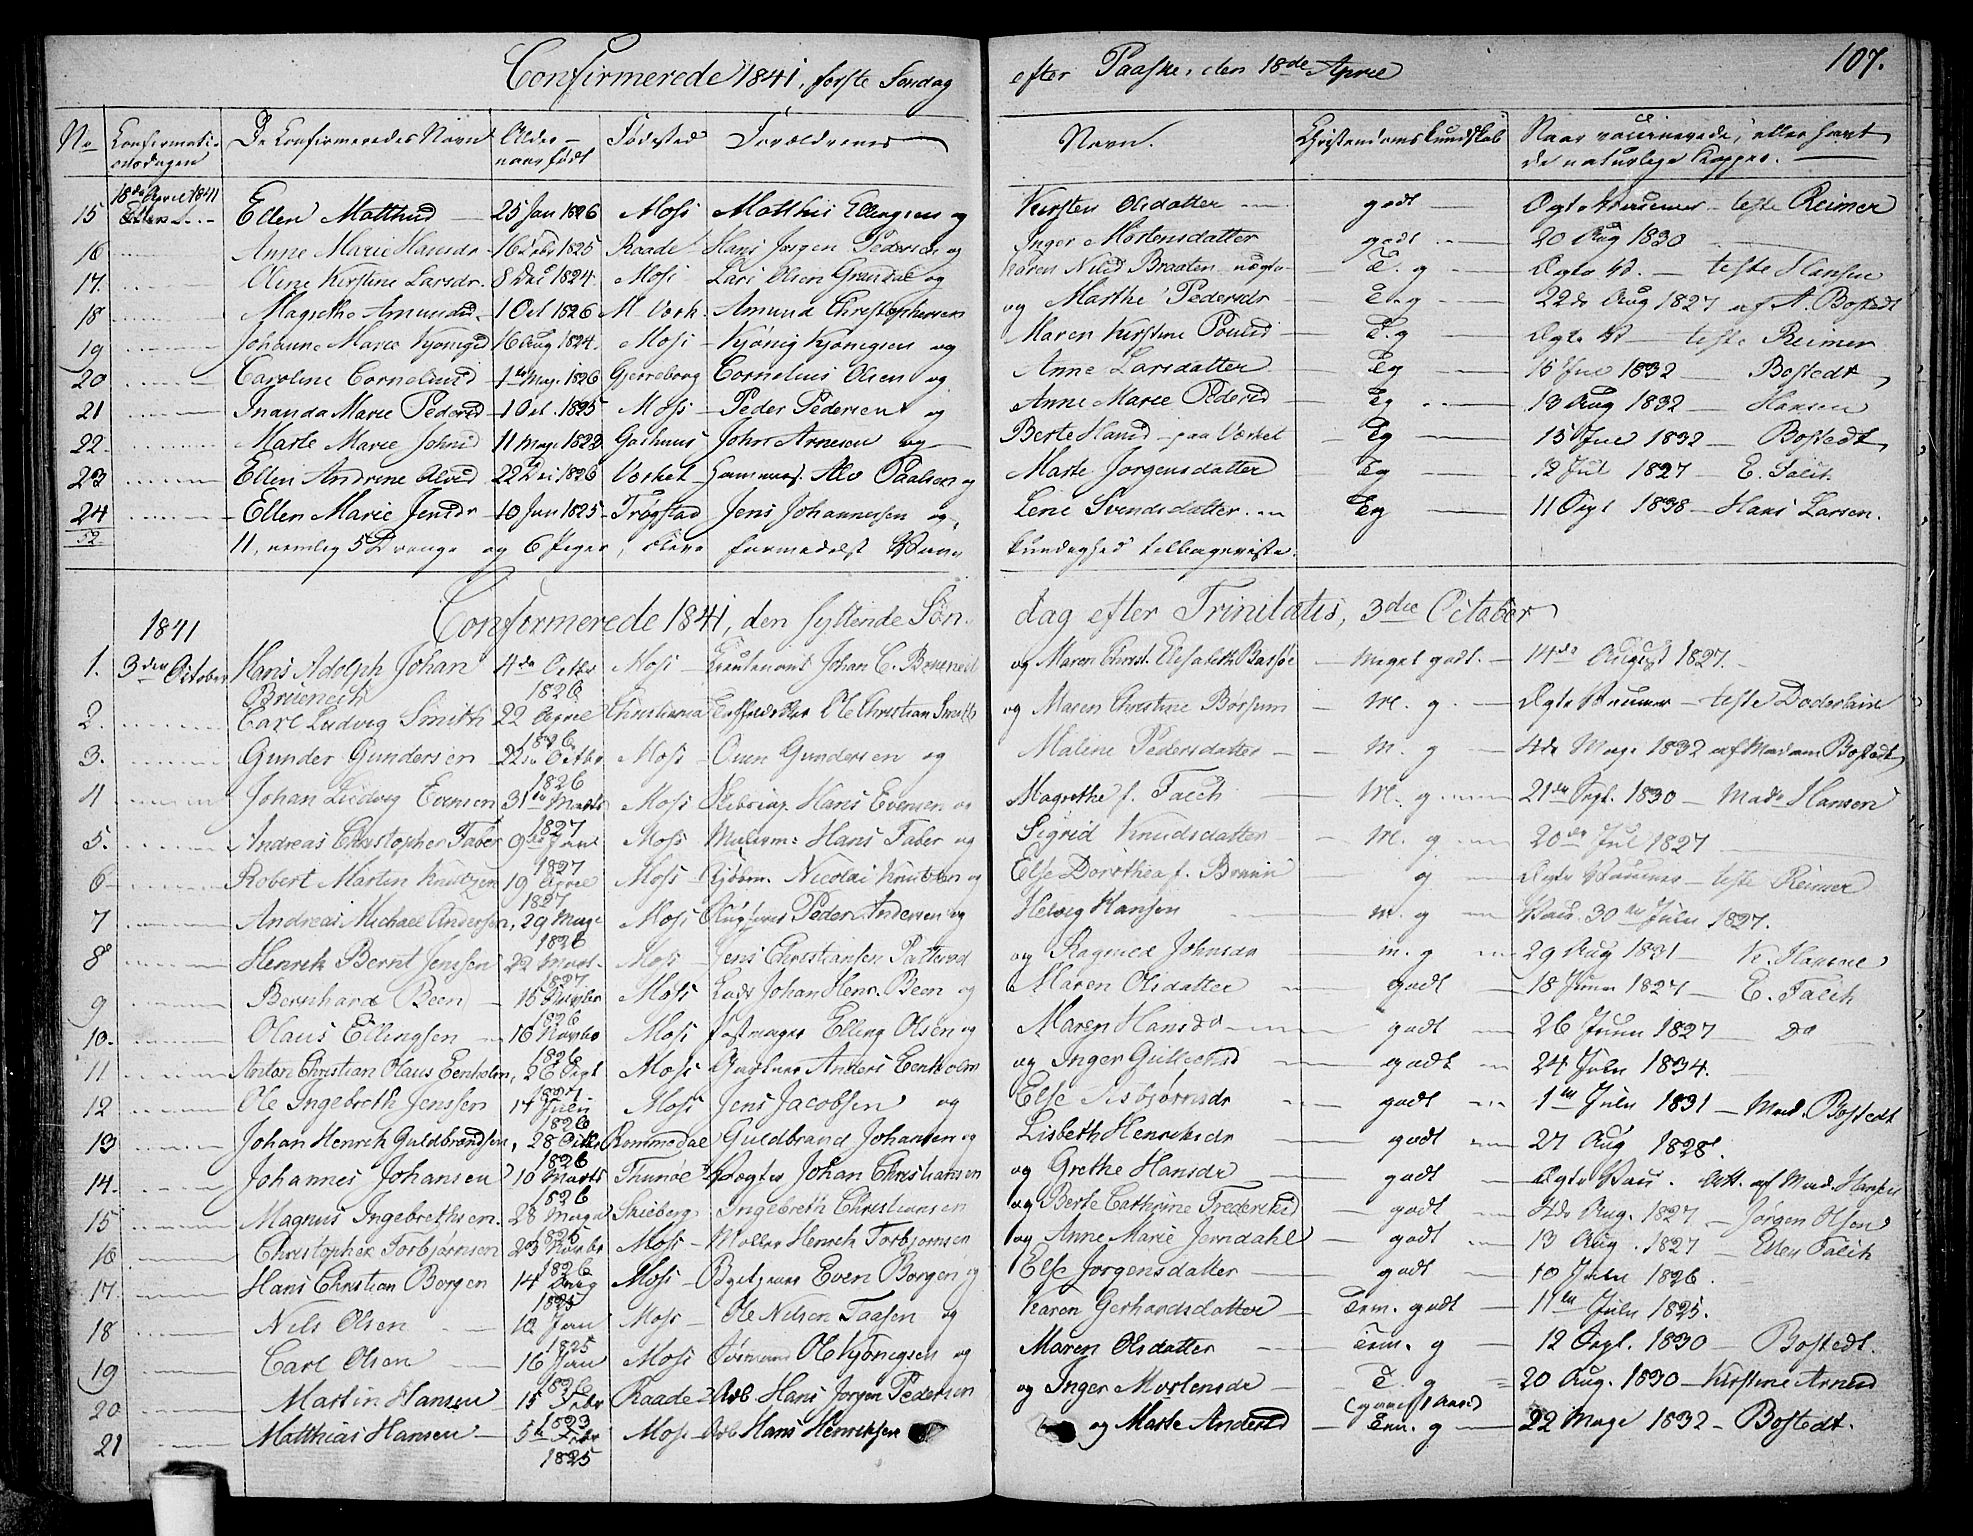 Confirmerede 1841, første Søndag efter Paaske, den 18de April 107.
No Confirmations-dagen De Confirmeredes Navn Alder - naar født Fødested Forældrenes Navn. Christendomskundskab Naar vaccinerede, eller havt de naturlige Kopper.
18de April 1841
15 Ellen Matthisd 25 Jan 1826 Moss Matthis Ellingsen og Kirsten Olsdatter godt teste Reimer
16 Anne Marie Hansdr 16 Febr 1825 Raade Hans Jørgen Pedersen og Inger Mortensdatter godt 20 Aug 1830
17. Oline Kirstine Larsdr. 8 Dec 1824. Moss Lars Olsen Grandal og Karen Nilsd Braaten T. g teste Hansen
18 Magrethe Amundsd. 1 Oct 1826 M. Værk. Amund Christophersen og Marthe Pedersdr T. g 22de Aug 1827 af A. Bostedt
19 Johanne Marie Kjønigsd 16 Aug 1824. Moss Kjønig Kjønigsen og Maren Kirstine Poulsd T. g teste Reimer
20 Caroline Corneliusd 1te Maj 1826 Gjerreborg Cornelius Olsen og Anne Larsdatter Tg 15 Jul 1832 Bostedt
21 Inanda Marie Pedersd 1 Oct. 1825 Moss Peder Pedersen og Anne Marie Pedersd Tg 13 Aug 1832 Hansen
22 Marte Marie Johnsd 11 Maj 1823 John Arnesen og Berte Hansd - paa Værket Tg 15 Jul 1832 - Bostedt
23 Ellen Andrine Alvsd 22 Dec 1826 Værket Alv Paalsen og Marte Jørgensdatter Tg 12 Jul 1827 - E. Falch
24 Ellen Marie Jensdr 10 Jan 1825 Trøgstad Jens Johannesen og Lene Svendsdatter Tg 11 Sept 1838 - Hans Larsen.
52. 11, nemlig 5 Drenge og 6 Piger, bleve formedelst Uvankundighed tilbageviste.
Confirmerede 1841, den syttende Søndag efter Trinitatis, 3die October
1841
1. 3die October Hans Adolph Johan Bruenech 4de Octbr 1826 Moss Lieutenant Johan C. Bruenech og Maren Christ. Elisabeth Bassøe Meget godt. 14de August 1827.
2. Carl Ludvig Smith 22 April 1826 Christiania Ole Christian Smith og Maren Christine Børsum M. g. teste Doderlein
3. Gunder Gundersen 22de Octbr 1826 Moss Gundersen og Maline Pedersdatter M. g 4de Maj 1832 af Madam Bostedt
4 Johan Ludvig Evensen 31te Marts 1827 Moss Hans Evensen og Magrethe f. Falch M. g 21de Sept. 1830 - Mad. Hansen
5. Andreas Christopher Faber 9de Jan 1827 Moss Hans Faber og Sigrid Knudsdatter M. g 20de Jul 1827
6 Robert Martin Knutzen 19 April 1827 Moss Kjøbm. Nicolai Knutzen og Else Dorothea f. Bruun g teste Reimer
7 Andreas Michael Andersen, 29 Maj 1826 Moss Peder Andersen og Helvig Hansen m. g Vacc. 30te Julii 1827.
8 Henrik Bernt Jenssen 22 Marts 1827 Moss Jens Christiansen og Johnsdr m. g 29 Aug 1831
9 Bernhard Been 15 1826 Moss Lods Johan Henr. Been og Maren Olsdatter godt 18 Junii 1827 - E. Falch
10. Olaus Ellingsen 16 Novbr 1826 Moss Elling Olsen og Maren Hansdr godt 26 Junii 1827 Do
11 Anton Christian Olaus Eenholm, 26 Sept 1827 Moss Anders Eenholm og Inger godt 24 Julii 1834.
12 Ole Ingebreth Jenssen 17 Julii 1826 Moss Jens Jacobsen og Else Asbjørnsdr godt 1ste Julii 1831 - Mad. Bostedt
13 Johan Henrik Guldbrandsen, 28 Octbr 1826 Remmedal Guldbrand Johansen og Lisbeth Henriksdr godt 27 Aug 1828.
14. Johannes Johansen 10 Marts 1826 Thunøe Johan Christiansen og Grethe Hansdr godt Att. af Mad. Hansen
15 Magnus Ingebrethsen. 28 Maji 1825 Skieberg Ingebreth Christiansen og Berte Cathrine Frederiksd godt 4de Aug. 1827 - Jørgen Olsen
16 Christopher Torbjørnsen 23 Novbr 1826 Moss Møller Henrik Torbjørnsen og Anne Marie Jerndahl godt 13 Aug. 1827 - Ellen Falch
17. Hans Christian Borgen 14 1825 Moss Even Borgen og Else Jørgensdatter godt 10 Julii 1826.
18 Nils Olsen 10 Jan 1825 Moss Ole Nilsen Taasen og Karen Gerhardsdatter Tem. godt 11te Julii 1825.
19 Carl Olsen 16 Jan 1826 Moss Ole Kjønigsen og Maren Olsdatter Tem. g 12 Sept. 1830 - Bostedt.
20 Martin Hansen 15 Febr 1823 Raade Arb. Hans Jørgen Pedersen og Inger Mortensdr T. g 20 Aug. 1830 - Kirstine Arnesd
21 Matthias Hansen 5te Febr 1825 Moss Arb. Hans Henriksen og Marte Andersd Tem. g 22 Maje 1832 - Bostedt.